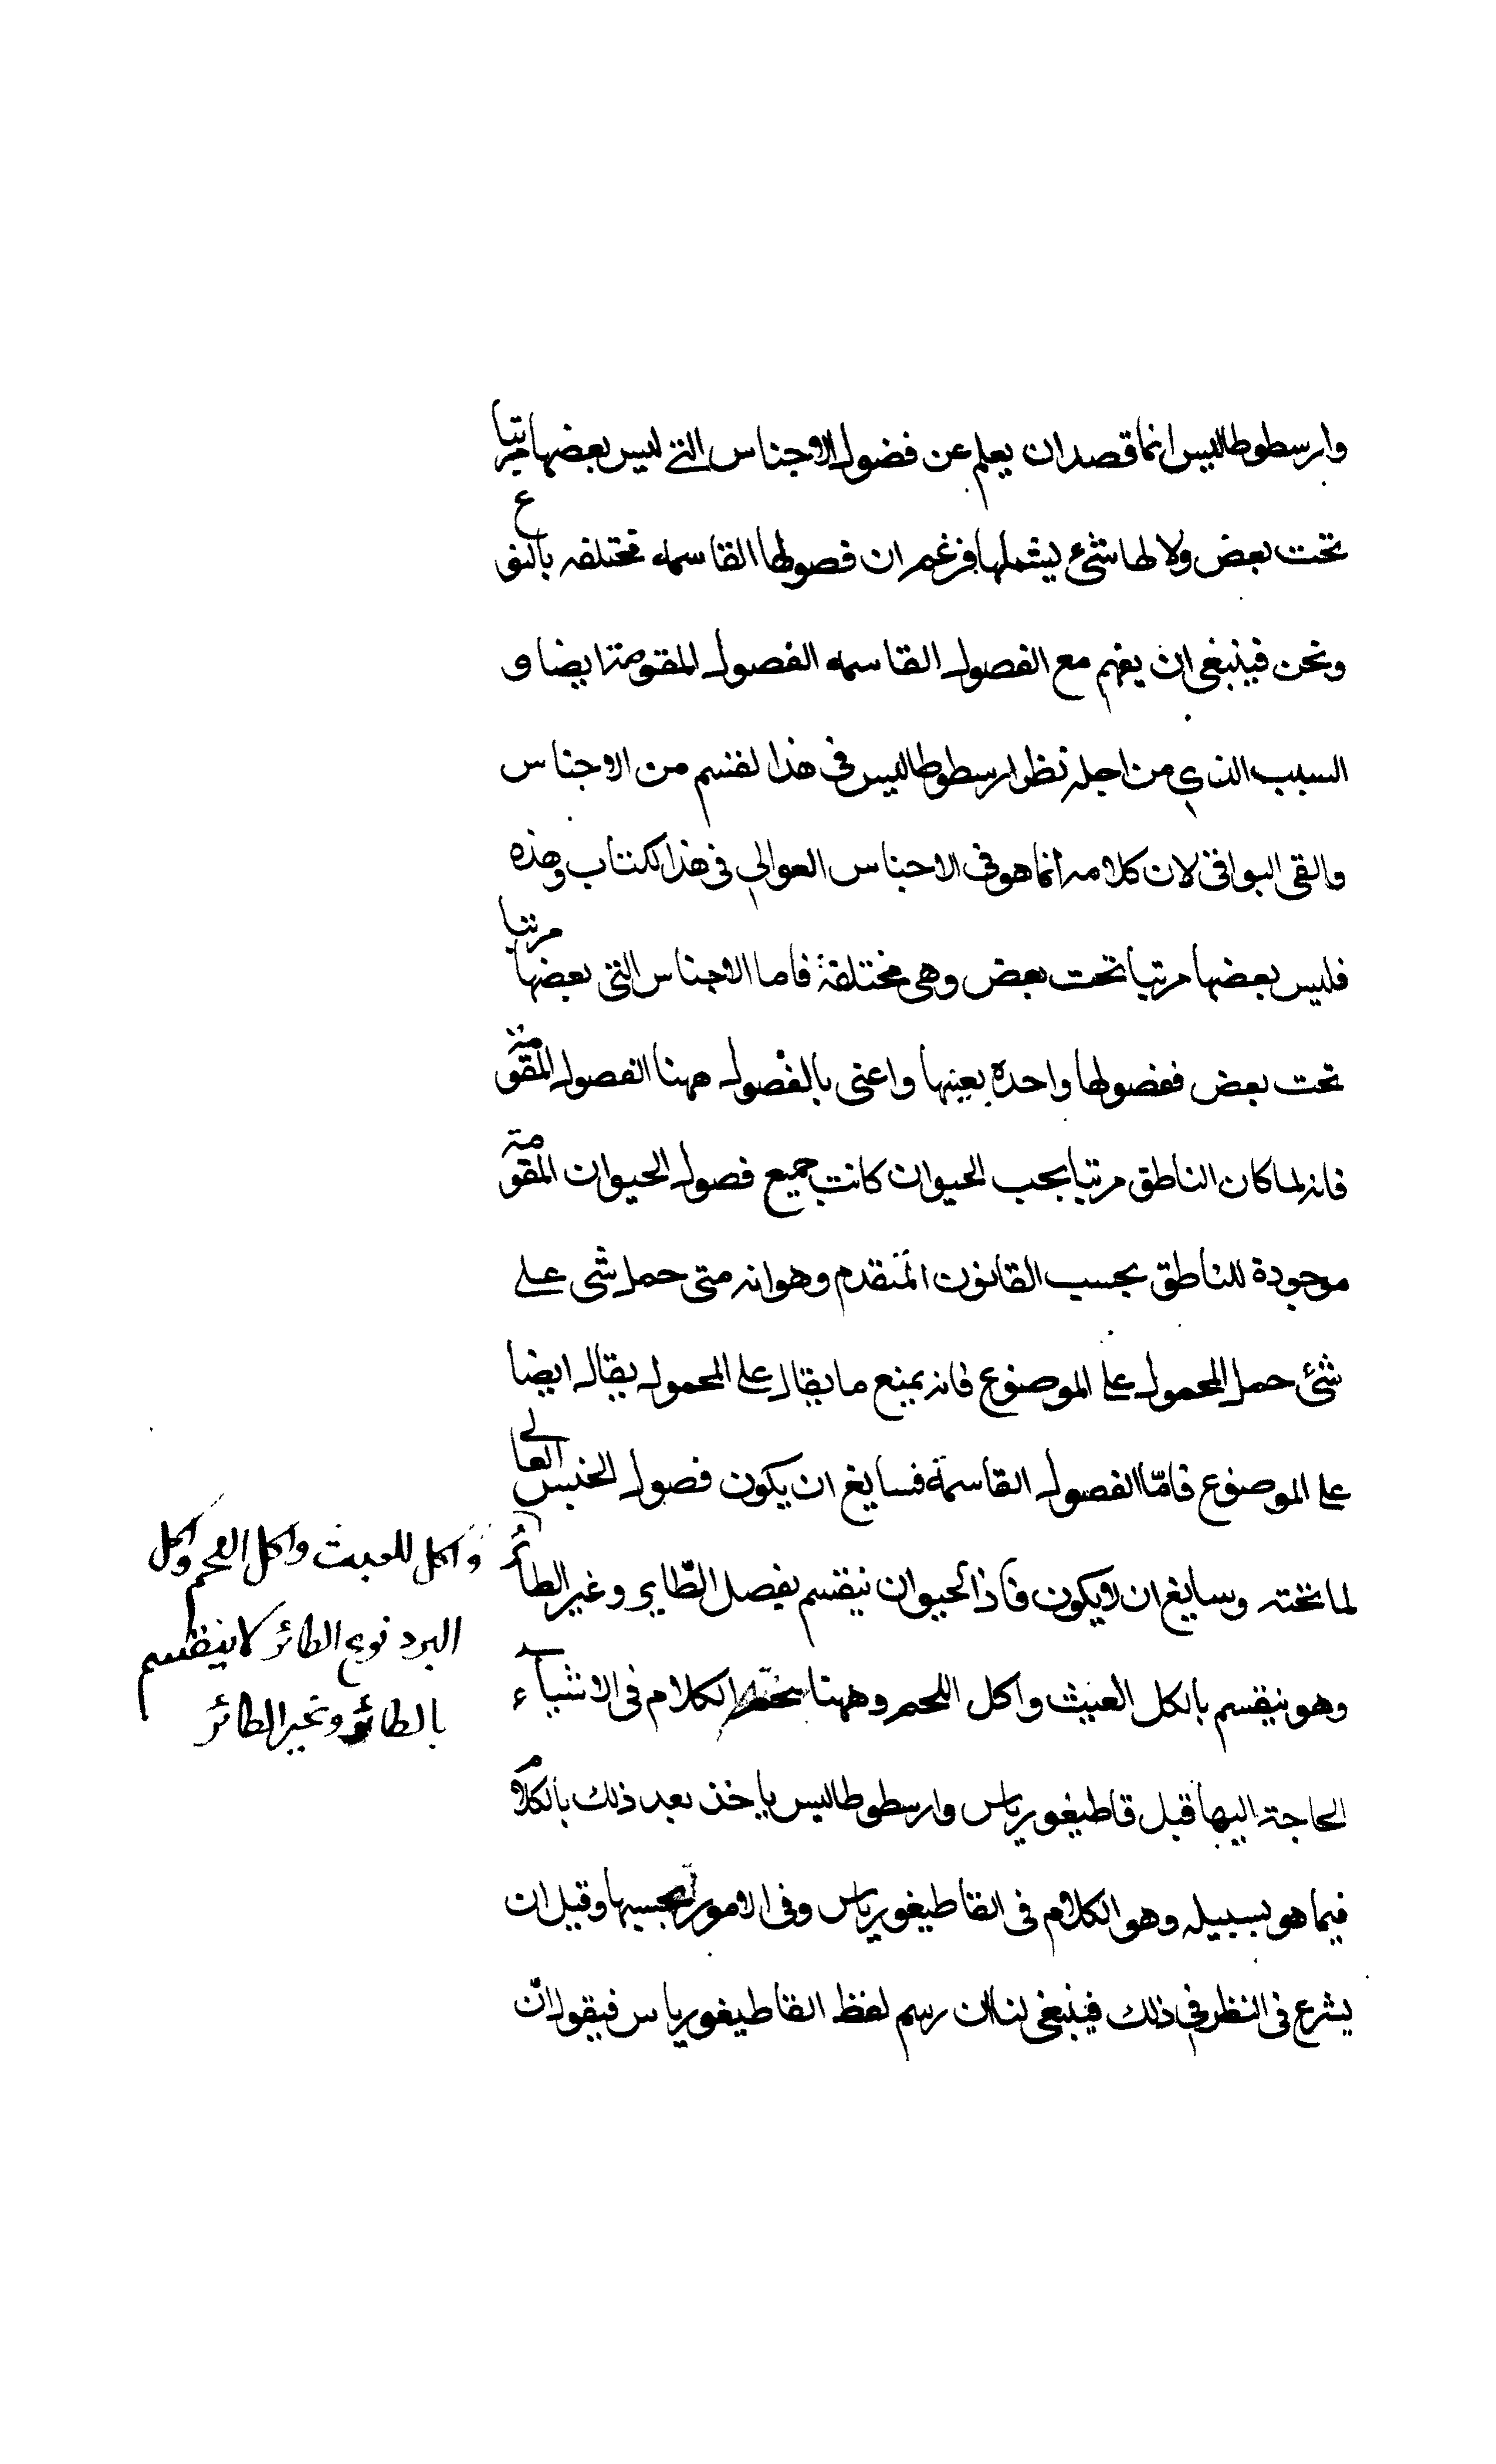 وارسطوطاليس انما قصد ان يعلم عن فضول الاجناس التي ليس بعضها مرتبا
تحت بعض ولا لها شئ يشملها فزغم ان فصولها القاسمه مختلفه بالنوع
ونحن فينبغي ان يفهم مع الفصول القاسمه الفصول المقومة ايضا و
السبب الذي من اجله نظر ارسطوطاليس في هذا لقسم من الاجناس
والقى البواقي لان كلامه انما هو في الاجناس العوالي في هذا لكتاب وهذه
فليس بعضها مرتبا تحت بعض وهي مختلفة فاما الاجناس التي بعضها مرتبا
تحت بعض ففصولها واحده بعينها واعني بالفصول ههنا الفصول المقومة
فانه لما كان الناطق مرتبا بحب الحيوان كانت جميع فصول الحيوان المقومة
موجودة للناطق بحسب القانون المتقدم وهو انه متى حمل شى على
شئ حمل المحمول على الموضوع فانه يمنع ما يقال على المحمول يقال ايضا
على الموضوع فامّا الفصول القاسمة فسايغ ان يكون فصول الجنس العالي
لما تحته وسايغ ان لا يكون فاذ الحيوان ينقسم بفصل الطّاير وغير الطائر
وهو ينقسم بالكل العبث واكل اللحم وههنا الكلام في الاشياء
الحاجة اليها قبل قاطيغورياس وارسطوطاليس ياخذ بعد ذلك بالكلام
فيما هو بسبيله وهو الكلام في القاطيغورياس وفي الامور وقبل ان
يشرع في النظر في ذلك فينبغي لنا ان رسم لفظ القاطيغورياس فيقول انّ
واكل للعبث واكل اللحم واكل
البرد نوع الطائر لا ينقسم
بالطائر وغير الطائر